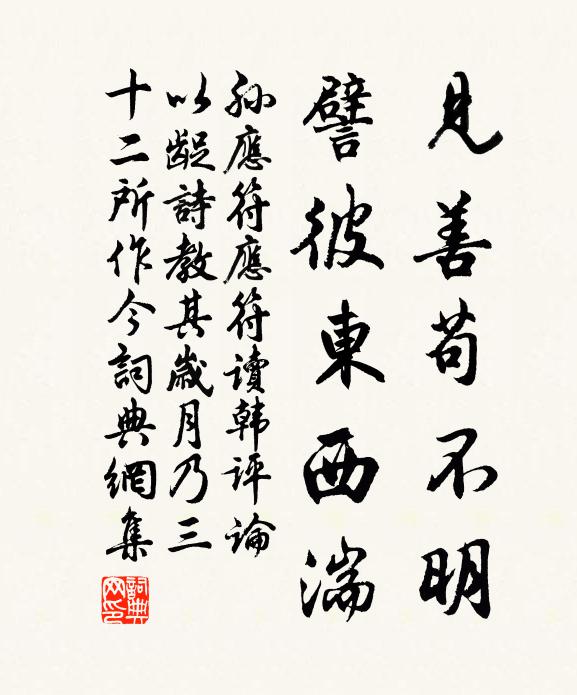 見善苟不明
譬彼東西湍
孙應符應符讀韩評論
以龊詩教其歲月乃三
十二所作今詞典網集
詞典网印